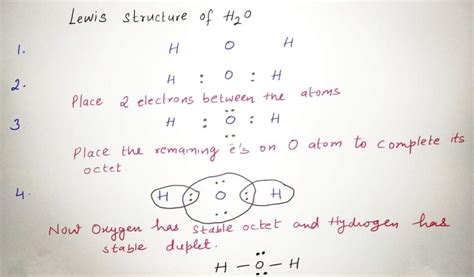 Lewis structure of H₂O
1. H O H
2. H : O : H
Place 2 electrons between the atoms
3 H : Ö̤ : H
Place the remaining e's on O atom to complete its
octet
4. H : Ö̤ : H
Now Oxygen has stable octet and Hydrogen has
stable duplet.
H – Ö̤ – H